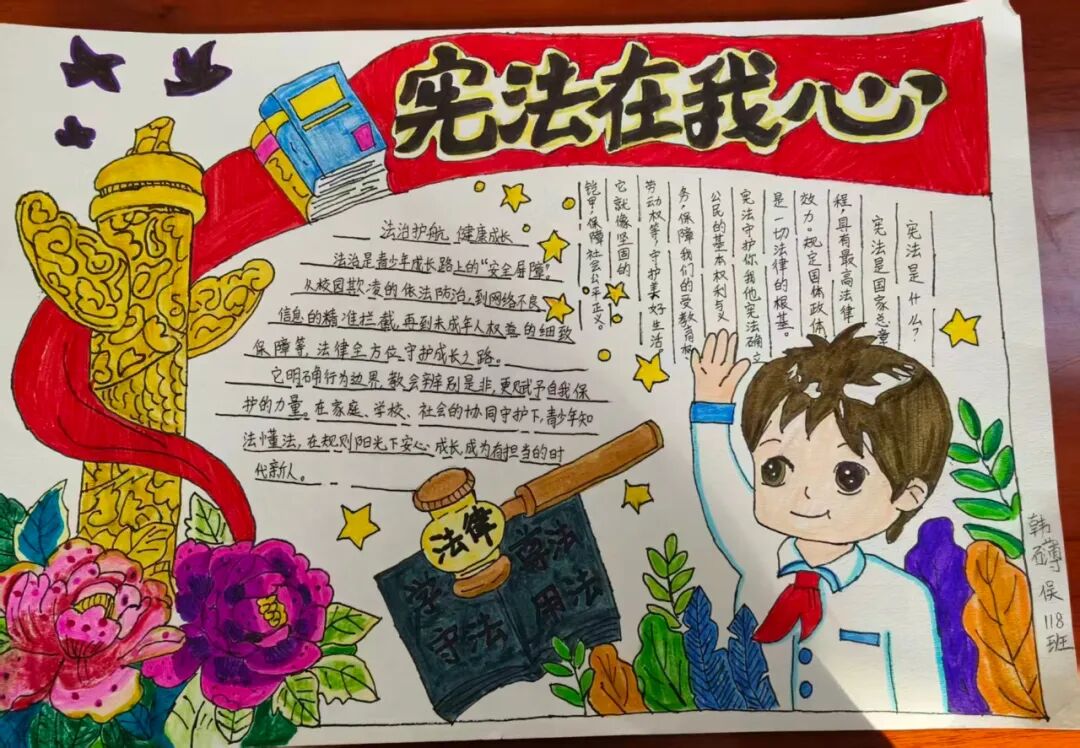 宪法在我心
法治护航 健康成长
法治是青少年成长路上的“安全屏障”。
从校园欺凌的依法防治,到网络不良
信息的精准拦截,再到未成年人权益的细致
保障等,法律全方位守护成长之路。
它明确行为边界,教会辨别是非,更赋予自我保
护的力量。在家庭、学校、社会的协同守护下,青少年知
法懂法,在规则阳光下安心成长,成为有担当的时
代新人。
宪法是什么?
宪法是国家总章
程,具有最高法律
效力。规定国体政体,
是一切法律的根基。
宪法守护你我他宪法确立
公民的基本权利与义
务,保障我们的受教育权
劳动权等,守护美好生活。
它就像坚固的
铠甲,保障社会公平正义。
法律
学
守法
尊法
用法
韩
118
班